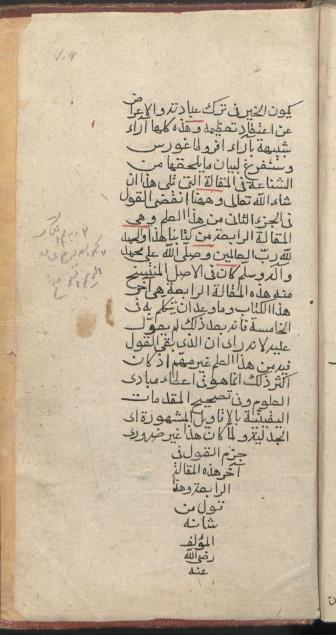 يكون الخير في ترك عبادته والاعراض
عن اعتقاد تعظيمه وهذه كلها آراء
شبيهة بآراء افروطاغورس
وسنتفرغ لبيان ما يلحقها من
الشناعة في المقالة التي تلي هذا ان
شاء الله تعالى وههنا انقضى القول
في الجزء الثاني من هذا العلم وهي
المقالة الرابعة من كتابنا هذا والحمد
لله رب العالمين وصلى الله على محمد
وآله وسلم كان في الاصل المنتسخ
منه هذه المقالة الرابعة هي آخر
هذا الكتاب وما وعد ان يتكلم به في
الخامسة فانه بعد ذلك لم يعول
عليه لانه رأى ان الذي بقي القول
فيه من هذا العلم غير مهم اذ كان
أكثر ذلك انما هو في اعطاء مبادى
العلوم وفي تصحيح المقدمات
اليقينية بالاقاويل المشهورة اى
الجدلية ولما كان هذا غير ضرورى
جزم القول في
آخر هذه المقالة
الرابعة وهذا
قول من
شانه
المؤلف
رضى الله
عنه